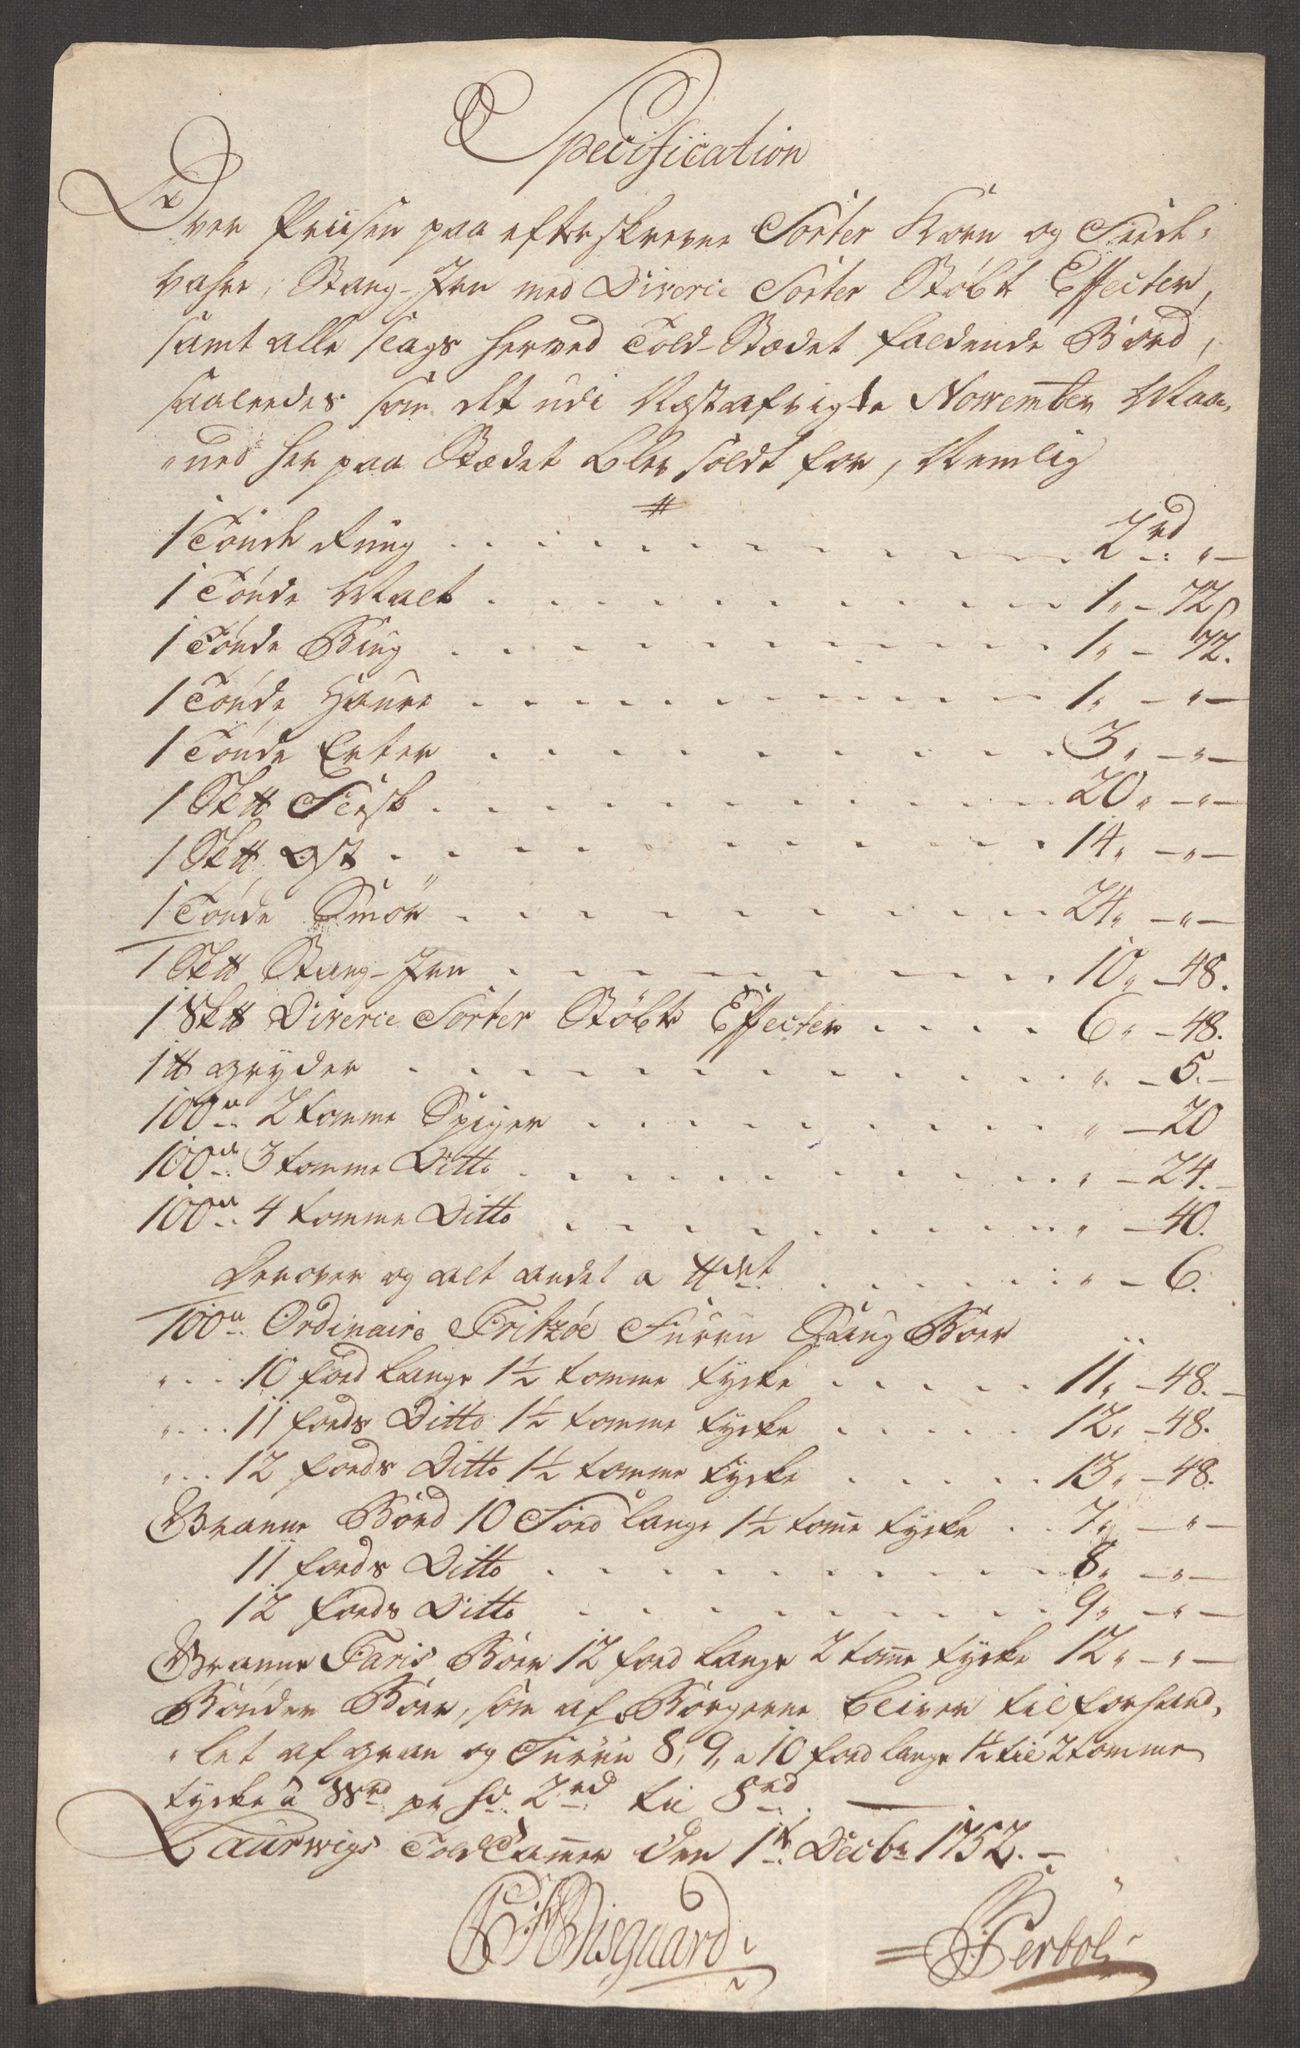 Specification
Over Priisen paa efterskrevne Sorter Korn og Feede-
vahre, Stang-Jern med Diverce Sorter Støbt Effecter,
samt alle slags herved Told-Stædet faldende Bord,
saaledes som det udi Næstafvigte November Maa-
ned her paa Stædet blev soldt for, Nemlig
1 Tønde Rug . . . 2 rd „ —
1 Tønde Malt . . . 1 „ — 72 s
1 Tønde Biug . . . 1 „ — 72.
1 Tønde Haure . . . 1 „ — „ —
1 Tønde Erter . . . 3 „ — „ —
1 Sk℔ Fersk . . . 20 „ — „ —
1 Sk℔ Ost . . . 14 „ — „ —
1 Tønde Smør . . . 24 „ — „ —
1 Sk℔ Stang-Jern . . . 10 „ — 48.
1 Sk℔ Diverce Sorter Støbte Effecter . . . 6 „ — 48.
1 ℔ gryder . . . „ — 5. —
100de 2 tomme Spiger . . . „ — 20
100de 3 tomme Ditto . . . „ — 24. —
100de 4 tomme Ditto . . . „ — 40.
Derover og alt andet a ℔det . . . „ — 6.
100de Ordinaire Fritzøe Furru Saug Boer
„ . . 10 foed lange 1½ tomme tycke . . . 11 „ — 48. —
„ . . 11 foeds Ditto 1½ tomme tycke . . . 12 „ — 48.
„ . . 12 foeds Ditto 1½ tomme tycke . . . 13 „ — 48.
Granne Bord 10 Foed lange 1½ tome tycke . . 7 „ — „ —
11 foeds Ditto . . . 8 „ — „ —
12 foeds Ditto . . . 9 „ — „ —
Granne Faris Boer 12 foed lange 2 tome tycke 12 „ — „ —
Bønder Boer, som af Borgerne bliver tilforhand-
let af gran og Furru 8, 9, a 10 foed lange 1½ til 2 tomme
tycke a pr 2 rd til 8 rd
Laurwigs Told Cammer den 1te Decbr 1752. —
Wisgaard